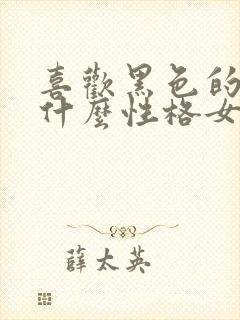 喜歡黑色的
什麼性格女
薛太英